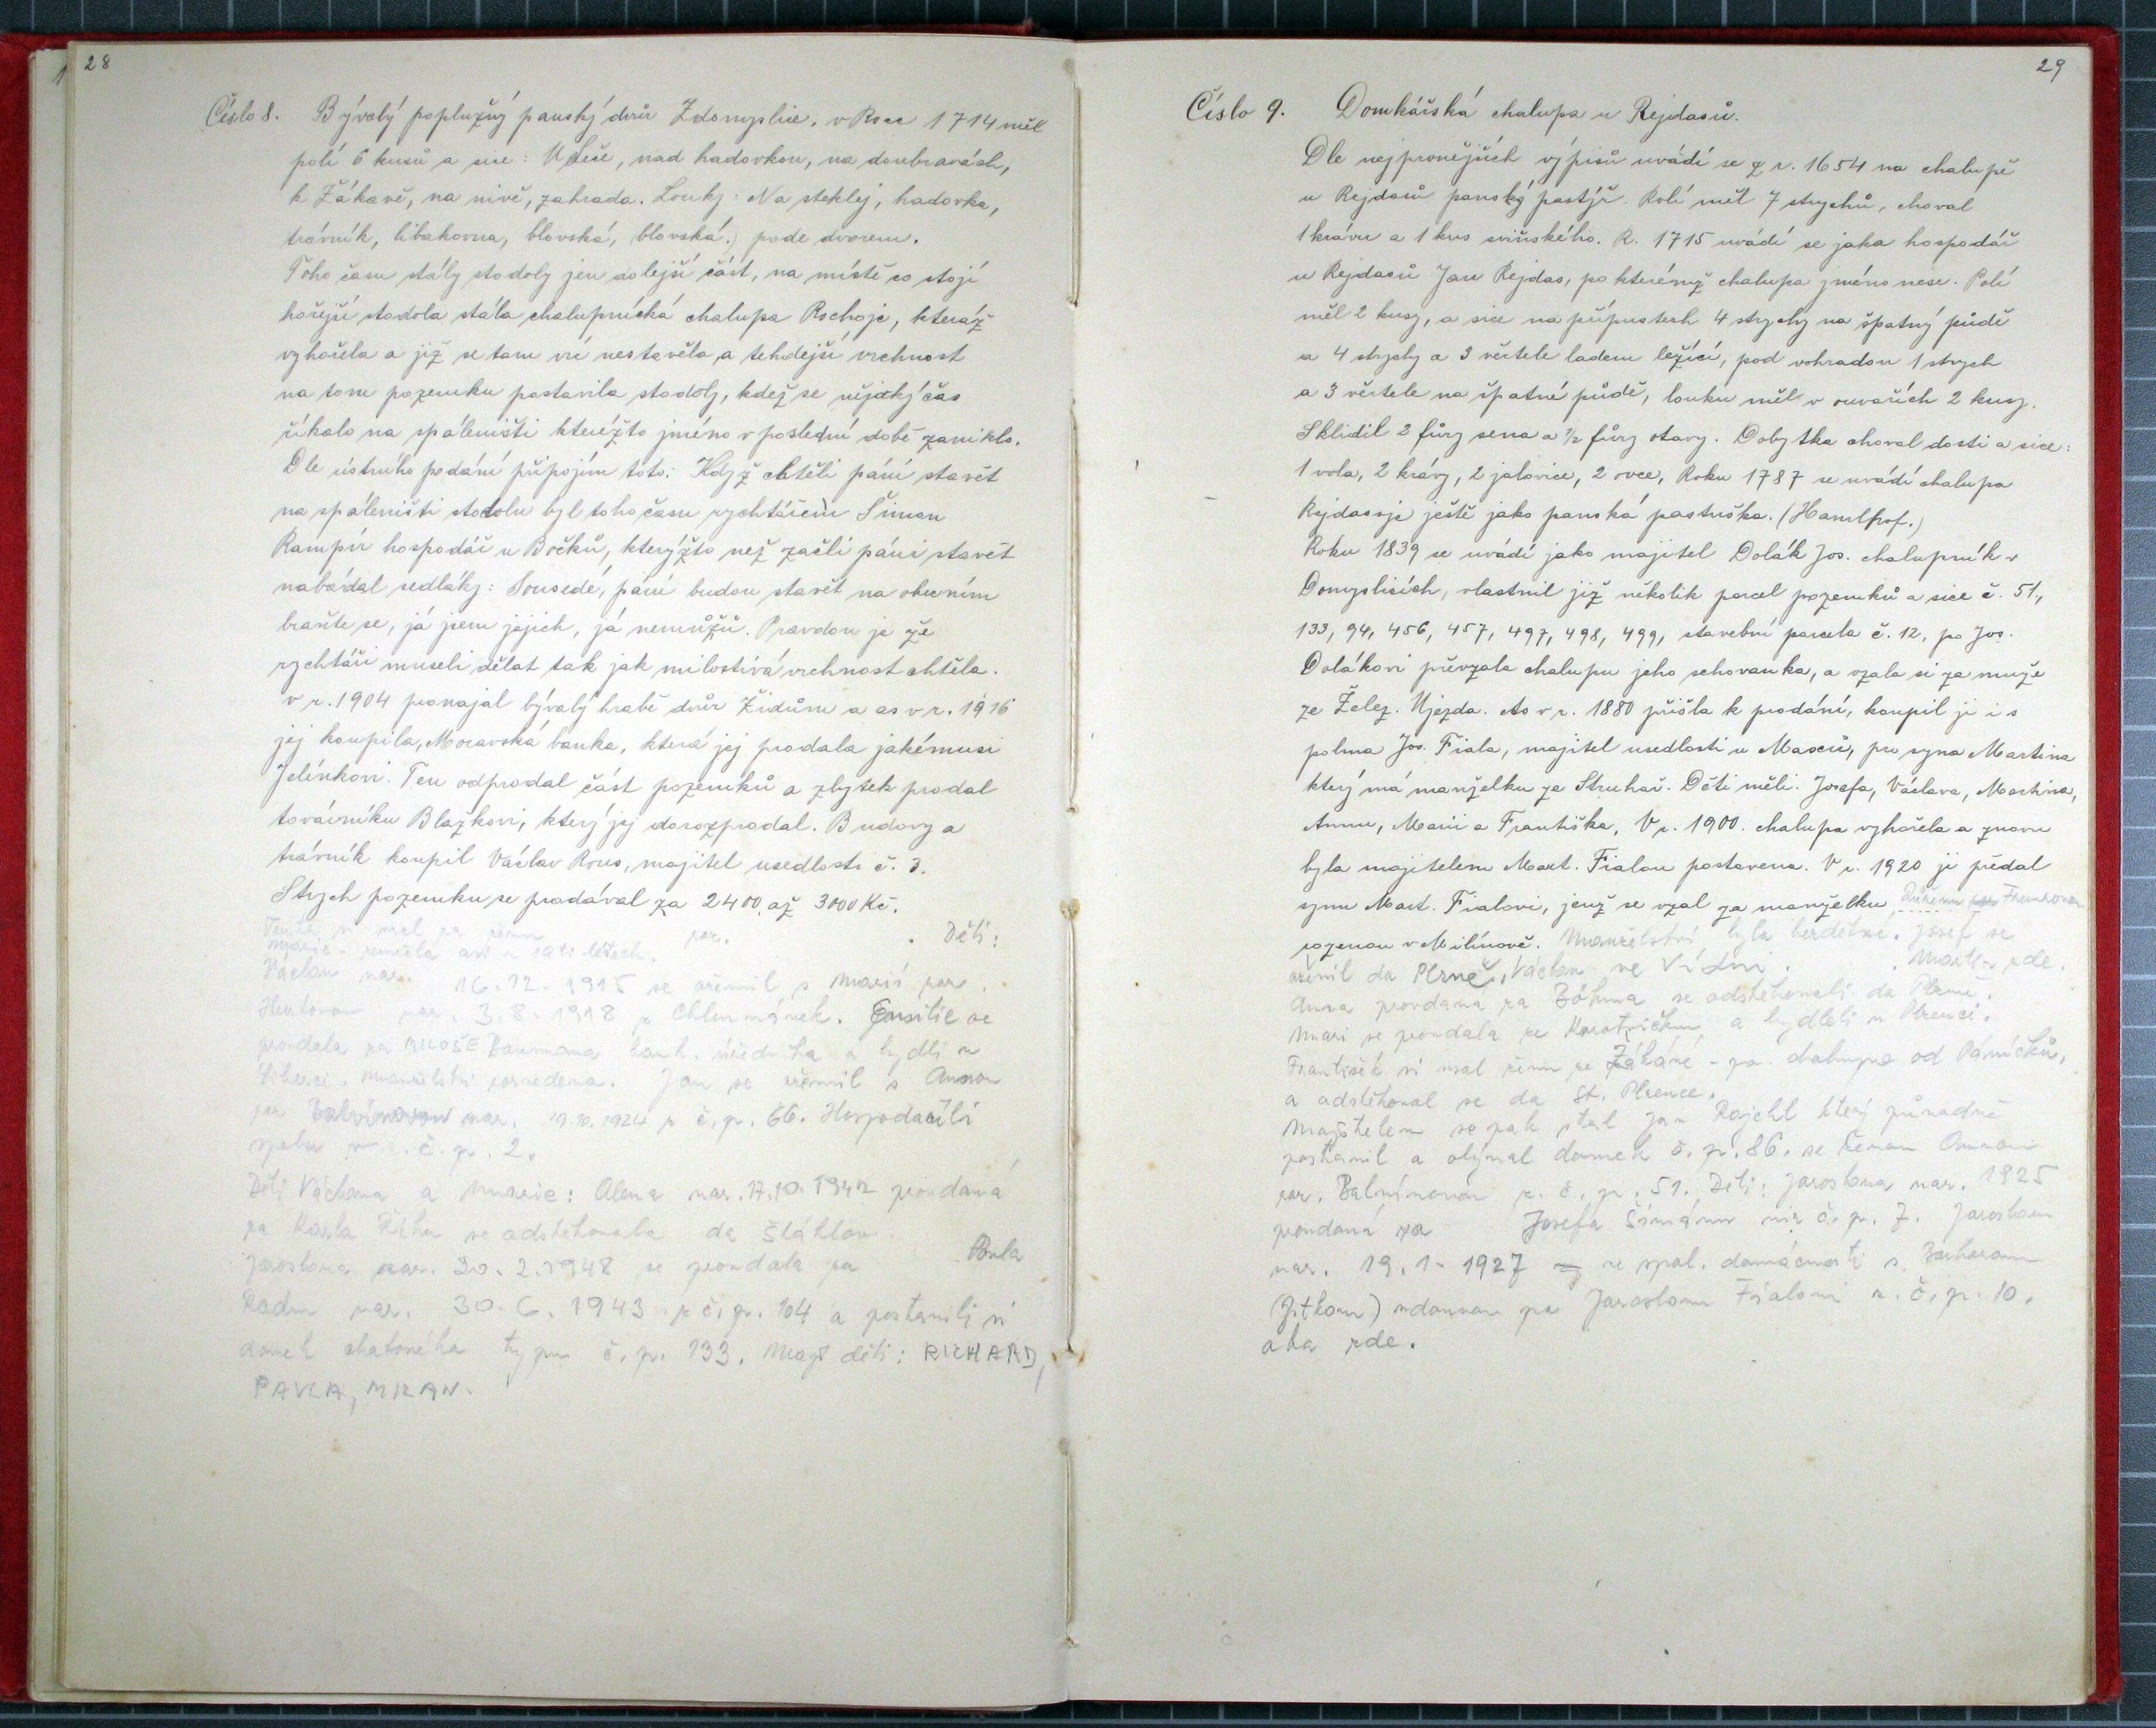 28
Číslo 8. Bývalý poplužný panský dvůr Zdomyslice, v Roce 1714 měl
polí 6 kusů a sice: U Leše, nad hadovkou, na doubravách,
k Žákavě, na nivě, zahrada. Louky: Na steklý, hadovka,
trávník, libakovna, blovská, (blovská.) pode dvorem.
Toho času stály stodoly jen dolejší část, na místě co stojí
hořejší stodola stála chalupnická chalupa Rochojc, kteráž
vyhořela a již se tam víc nestavěla, a tehdejší vrchnost
na tom pozemku postavila stodoly, kdež se nějaký čas
říkalo na spáleništi kteréžto jméno v poslední době zaniklo.
Dle ústního podání připojím toto: Když chtěli páni stavět
na spáleništi stodolu byl toho času rychtářem Šimon
Rampír hospodář u Bočků, kterýžto než začli páni stavět
nabádal sedláky: Sousedé, páni budou stavět na obecním
braňte se, já jsem jejich, já nemůžů. Pravdou je že
rychtáři museli dělat tak jak milostivá vrchnost chtěla.
v r. 1904 pronajal bývalý hrabě dvůr Židům a as v r. 1916
jej koupila, Moravská banka, která jej prodala jakémusi
Jelínkovi. Ten odprodal část pozemků a zbytek prodal
továrníku Blažkovi, který jej dorozprodal. Budovy a
trávník koupil Václav Rous, majitel usedlosti č. 3.
Strych pozemku se prodával za 2400 až 3000 Kč.
Tento si vzal za ženu nar. Děti:
Marie - zemřela asi v 19ti letech.
Václav nar. 16.12.1915 se oženil s Marií roz.
nar. 3.8.1918 z Chlumánek. Emilie se
provdala za MILOŠE Baumana bank. úředníka a bydlí v
Liberci. Manželství rozvedeno. Jan se oženil s Annou
roz nar. 19.10.1924 z č.p. 66. Hospodařili
spolu v č.p. 2.
Děti Václava a Marie: Alena nar. 17.10.1942 provdaná
za Karla Říhu se odstěhovala do Šťáhlav.
Jaroslava nar. 20.2.1948 se provdala za Pavla
Radu nar. 30.6.1943 z č.p. 104 a postavili si
domek chatového typu č.p. 133. Mají děti: RICHARD,
PAVLA, MILAN.
29
Číslo 9. Domkářská chalupa u Rejdasů.
Dle nejprvnějších výpisů uvádí se z r. 1654 na chalupě
u Rejdasů panský pastýř. Rolí měl 7 strychů, choval
1 krávu a 1 kus sviňského. R. 1715 uvádí se jaka hospodář
u Rejdasů Jan Rejdas, po kterémž chalupa jméno nese. Polí
měl 2 kusy, a sice na přípustech 4 strychy na špatný půdě
a 4 strychy a 3 věrtele ladem ležící, pod vohradou 1 strych
a 3 věrtele na špatné půdě, louku měl v ouvařích 2 kusy.
Sklidil 2 fůry sena a 1/2 fůry otavy. Dobytka choval dosti a sice:
1 vola, 2 krávy, 2 jalovice, 2 ovce, Roku 1787 se uvádí chalupa
Rejdasojc ještě jako panská pastuška. (Hamlhof.)
Roku 1839 se uvádí jako majitel Dolák Jos. chalupník v
Domyslicích, vlastnil již několik parcel pozemků a sice č. 51,
133, 94, 456, 457, 497, 498, 499, stavební parcela č. 12, po Jos.
Dolákovi převzala chalupu jeho schovanka, a vzala si za muže
ze Želez. Ujezda. As v r. 1880 přišla k prodání, koupil ji i s
polma Jos. Fiala, majitel usedlosti u Maxů, pro syna Martina
který má manželku ze Struhař. Děti měli. Josefa, Václava, Martina,
Annu, Marii a Františka, V r. 1900. chalupa vyhořela a znovu
byla majitelem Mart. Fialou postavena. V r. 1920 ji předal
synu Mart. Fialovi, jenž se vzal za manželku Růženu
rozenou v Milínově. Manželství bylo bezdětné. Josef se
oženil do Plzně, Václav ve Vídni. Martin zde.
Anna provdaná za Böhma se odstěhovali do Plzně.
Mari se provdala za a bydleli v Plzenci.
František si vzal ženu ze Žákavé - po. chalupa od Páníčků,
a odstěhoval se do St. Plzence.
Majitelem se pak stal Jan Rajchl který původně
postavil a obýval domek č.p. 86. se ženou Annou
roz. z č.p. 51. Děti: Jaroslava nar. 1925
provdaná za Josefa Šimánu viz č.p. 7. Jaroslav
nar. 19.1.1927 ve spol. domácnosti s Barborou
(Jitkou) vdovou po Jaroslavu Fialovi z č.p. 10.
oba zde.